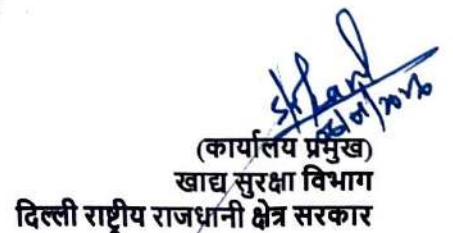 (कार्यालय प्रमुख)
खाद्य सुरक्षा विभाग
दिल्ली राष्ट्रीय राजधानी क्षेत्र सरकार